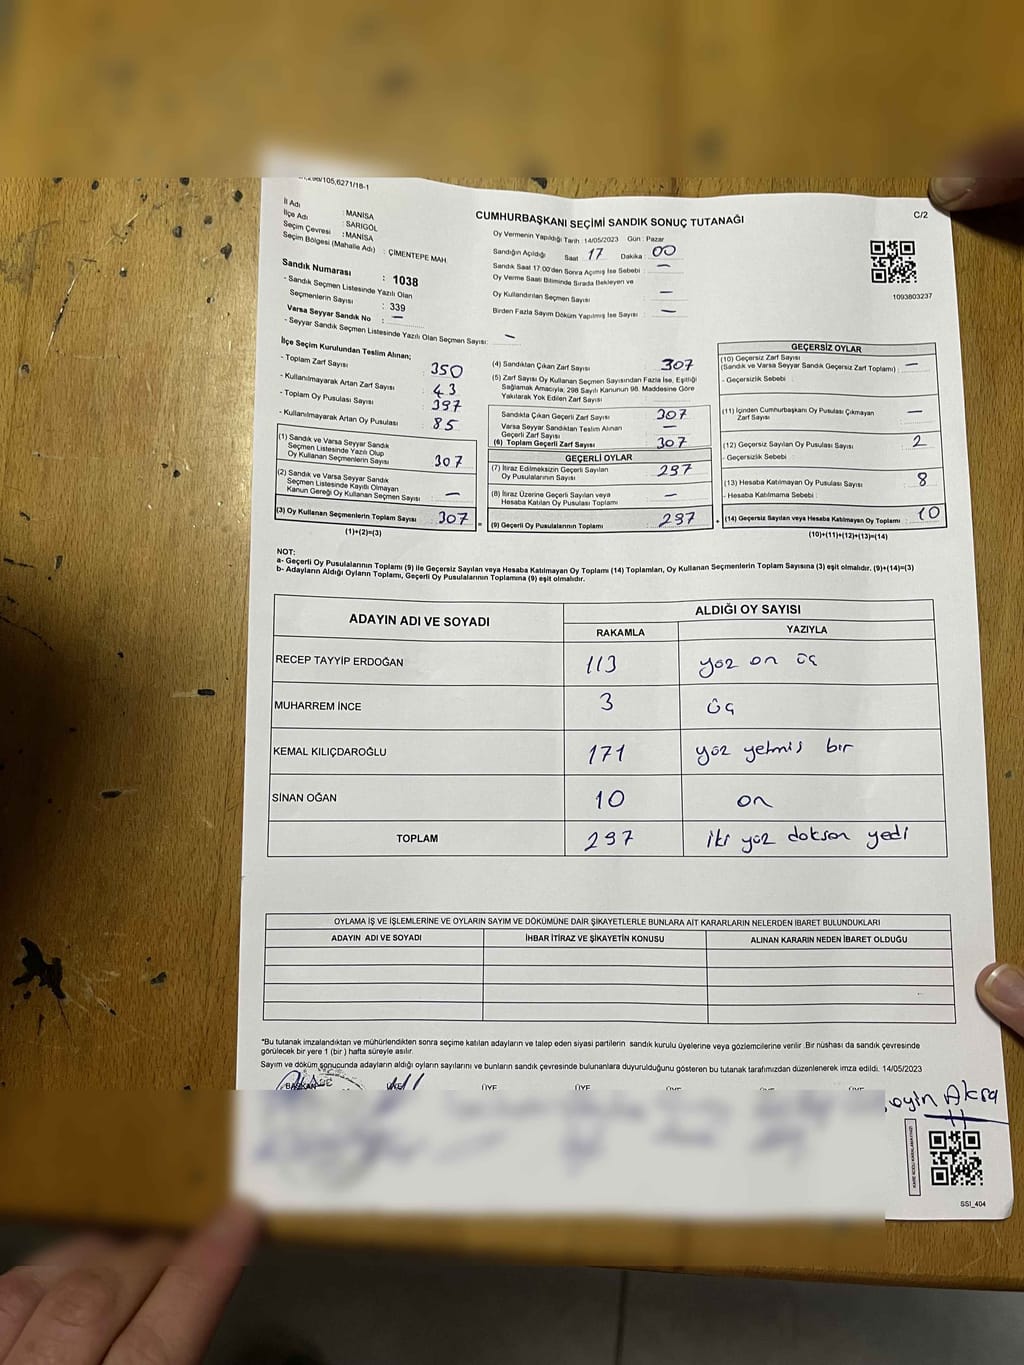 CUMHURBAŞKANI SEÇİMİ SANDIK SONUÇ TUTANAĞI
C/2
İl Adı : MANİSA
İlçe Adı : SARIGÖL
Seçim Çevresi : MANİSA
Seçim Bölgesi (Mahalle Adı) : ÇİMENTEPE MAH.
Sandık Numarası : 1038
- Sandık Seçmen Listesinde Yazılı Olan
Seçmenlerin Sayısı : 339
Varsa Seyyar Sandık No : —
- Seyyar Sandık Seçmen Listesinde Yazılı Olan Seçmen Sayısı: —
Oy Vermenin Yapıldığı Tarih :14/05/2023 Gün : Pazar
Sandığın Açıldığı Saat 17 Dakika : 00
Sandık Saat 17:00'den Sonra Açılmış İse Sebebi : —
Oy Verme Saati Bitiminde Sırada Bekleyen ve
Oy Kullandırılan Seçmen Sayısı —
Birden Fazla Sayım Döküm Yapılmış İse Sayısı : —
1093803237
İlçe Seçim Kurulundan Teslim Alınan;
- Toplam Zarf Sayısı 350
- Kullanılmayarak Artan Zarf Sayısı 43
- Toplam Oy Pusulası Sayısı 397
- Kullanılmayarak Artan Oy Pusulası 85
(1) Sandık ve Varsa Seyyar Sandık
Seçmen Listesinde Yazılı Olup
Oy Kullanan Seçmenlerin Sayısı 307
(2) Sandık ve Varsa Seyyar Sandık
Seçmen Listesinde Kayıtlı Olmayan
Kanun Gereği Oy Kullanan Seçmen Sayısı —
(3) Oy Kullanan Seçmenlerin Toplam Sayısı 307
(1)+(2)=(3)
(4) Sandıktan Çıkan Zarf Sayısı 307
(5) Zarf Sayısı Oy Kullanan Seçmen Sayısından Fazla İse, Eşitliği
Sağlamak Amacıyla, 298 Sayılı Kanunun 98. Maddesine Göre
Yakılarak Yok Edilen Zarf Sayısı
Sandıkta Çıkan Geçerli Zarf Sayısı 307
Varsa Seyyar Sandıktan Teslim Alınan
Geçerli Zarf Sayısı —
(6) Toplam Geçerli Zarf Sayısı 307
GEÇERLİ OYLAR
(7) İtiraz Edilmeksizin Geçerli Sayılan
Oy Pusulalarının Sayısı 297
(8) İtiraz Üzerine Geçerli Sayılan veya
Hesaba Katılan Oy Pusulası Toplamı —
(9) Geçerli Oy Pusulalarının Toplamı 297
GEÇERSİZ OYLAR
(10) Geçersiz Zarf Sayısı
(Sandık ve Varsa Seyyar Sandık Geçersiz Zarf Toplamı) : —
- Geçersizlik Sebebi
(11) İçinden Cumhurbaşkanı Oy Pusulası Çıkmayan
Zarf Sayısı —
(12) Geçersiz Sayılan Oy Pusulası Sayısı 2
- Geçersizlik Sebebi :
(13) Hesaba Katılmayan Oy Pusulası Sayısı 8
- Hesaba Katılmama Sebebi :
(14) Geçersiz Sayılan veya Hesaba Katılmayan Oy Toplamı 10
(10)+(11)+(12)+(13)=(14)
NOT:
a- Geçerli Oy Pusulalarının Toplamı (9) ile Geçersiz Sayılan veya Hesaba Katılmayan Oy Toplamı (14) Toplamları, Oy Kullanan Seçmenlerin Toplam Sayısına (3) eşit olmalıdır. (9)+(14)=(3)
b- Adayların Aldığı Oyların Toplamı, Geçerli Oy Pusulalarının Toplamına (9) eşit olmalıdır.
ADAYIN ADI VE SOYADI ALDIĞI OY SAYISI
RAKAMLA YAZIYLA
RECEP TAYYİP ERDOĞAN 113 yüz on üç
MUHARREM İNCE 3 üç
KEMAL KILIÇDAROĞLU 171 yüz yetmiş bir
SİNAN OĞAN 10 on
TOPLAM 297 iki yüz doksan yedi
OYLAMA İŞ VE İŞLEMLERİNE VE OYLARIN SAYIM VE DÖKÜMÜNE DAİR ŞİKAYETLERLE BUNLARA AİT KARARLARIN NELERDEN İBARET BULUNDUKLARI
ADAYIN ADI VE SOYADI İHBAR İTİRAZ VE ŞİKAYETİN KONUSU ALINAN KARARIN NEDEN İBARET OLDUĞU
*Bu tutanak imzalandıktan ve mühürlendikten sonra seçime katılan adayların ve talep eden siyasi partilerin sandık kurulu üyelerine veya gözlemcilerine verilir .Bir nüshası da sandık çevresinde
görülecek bir yere 1 (bir ) hafta süreyle asılır.
Sayım ve döküm sonucunda adayların aldığı oyların sayılarını ve bunların sandık çevresinde bulunanlara duyurulduğunu gösteren bu tutanak tarafımızdan düzenlenerek imza edildi. 14/05/2023
BAŞKAN ÜYE ÜYE ÜYE
SSI_404